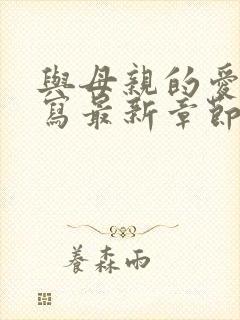 與母親的愛
寫最新章節
養森雨